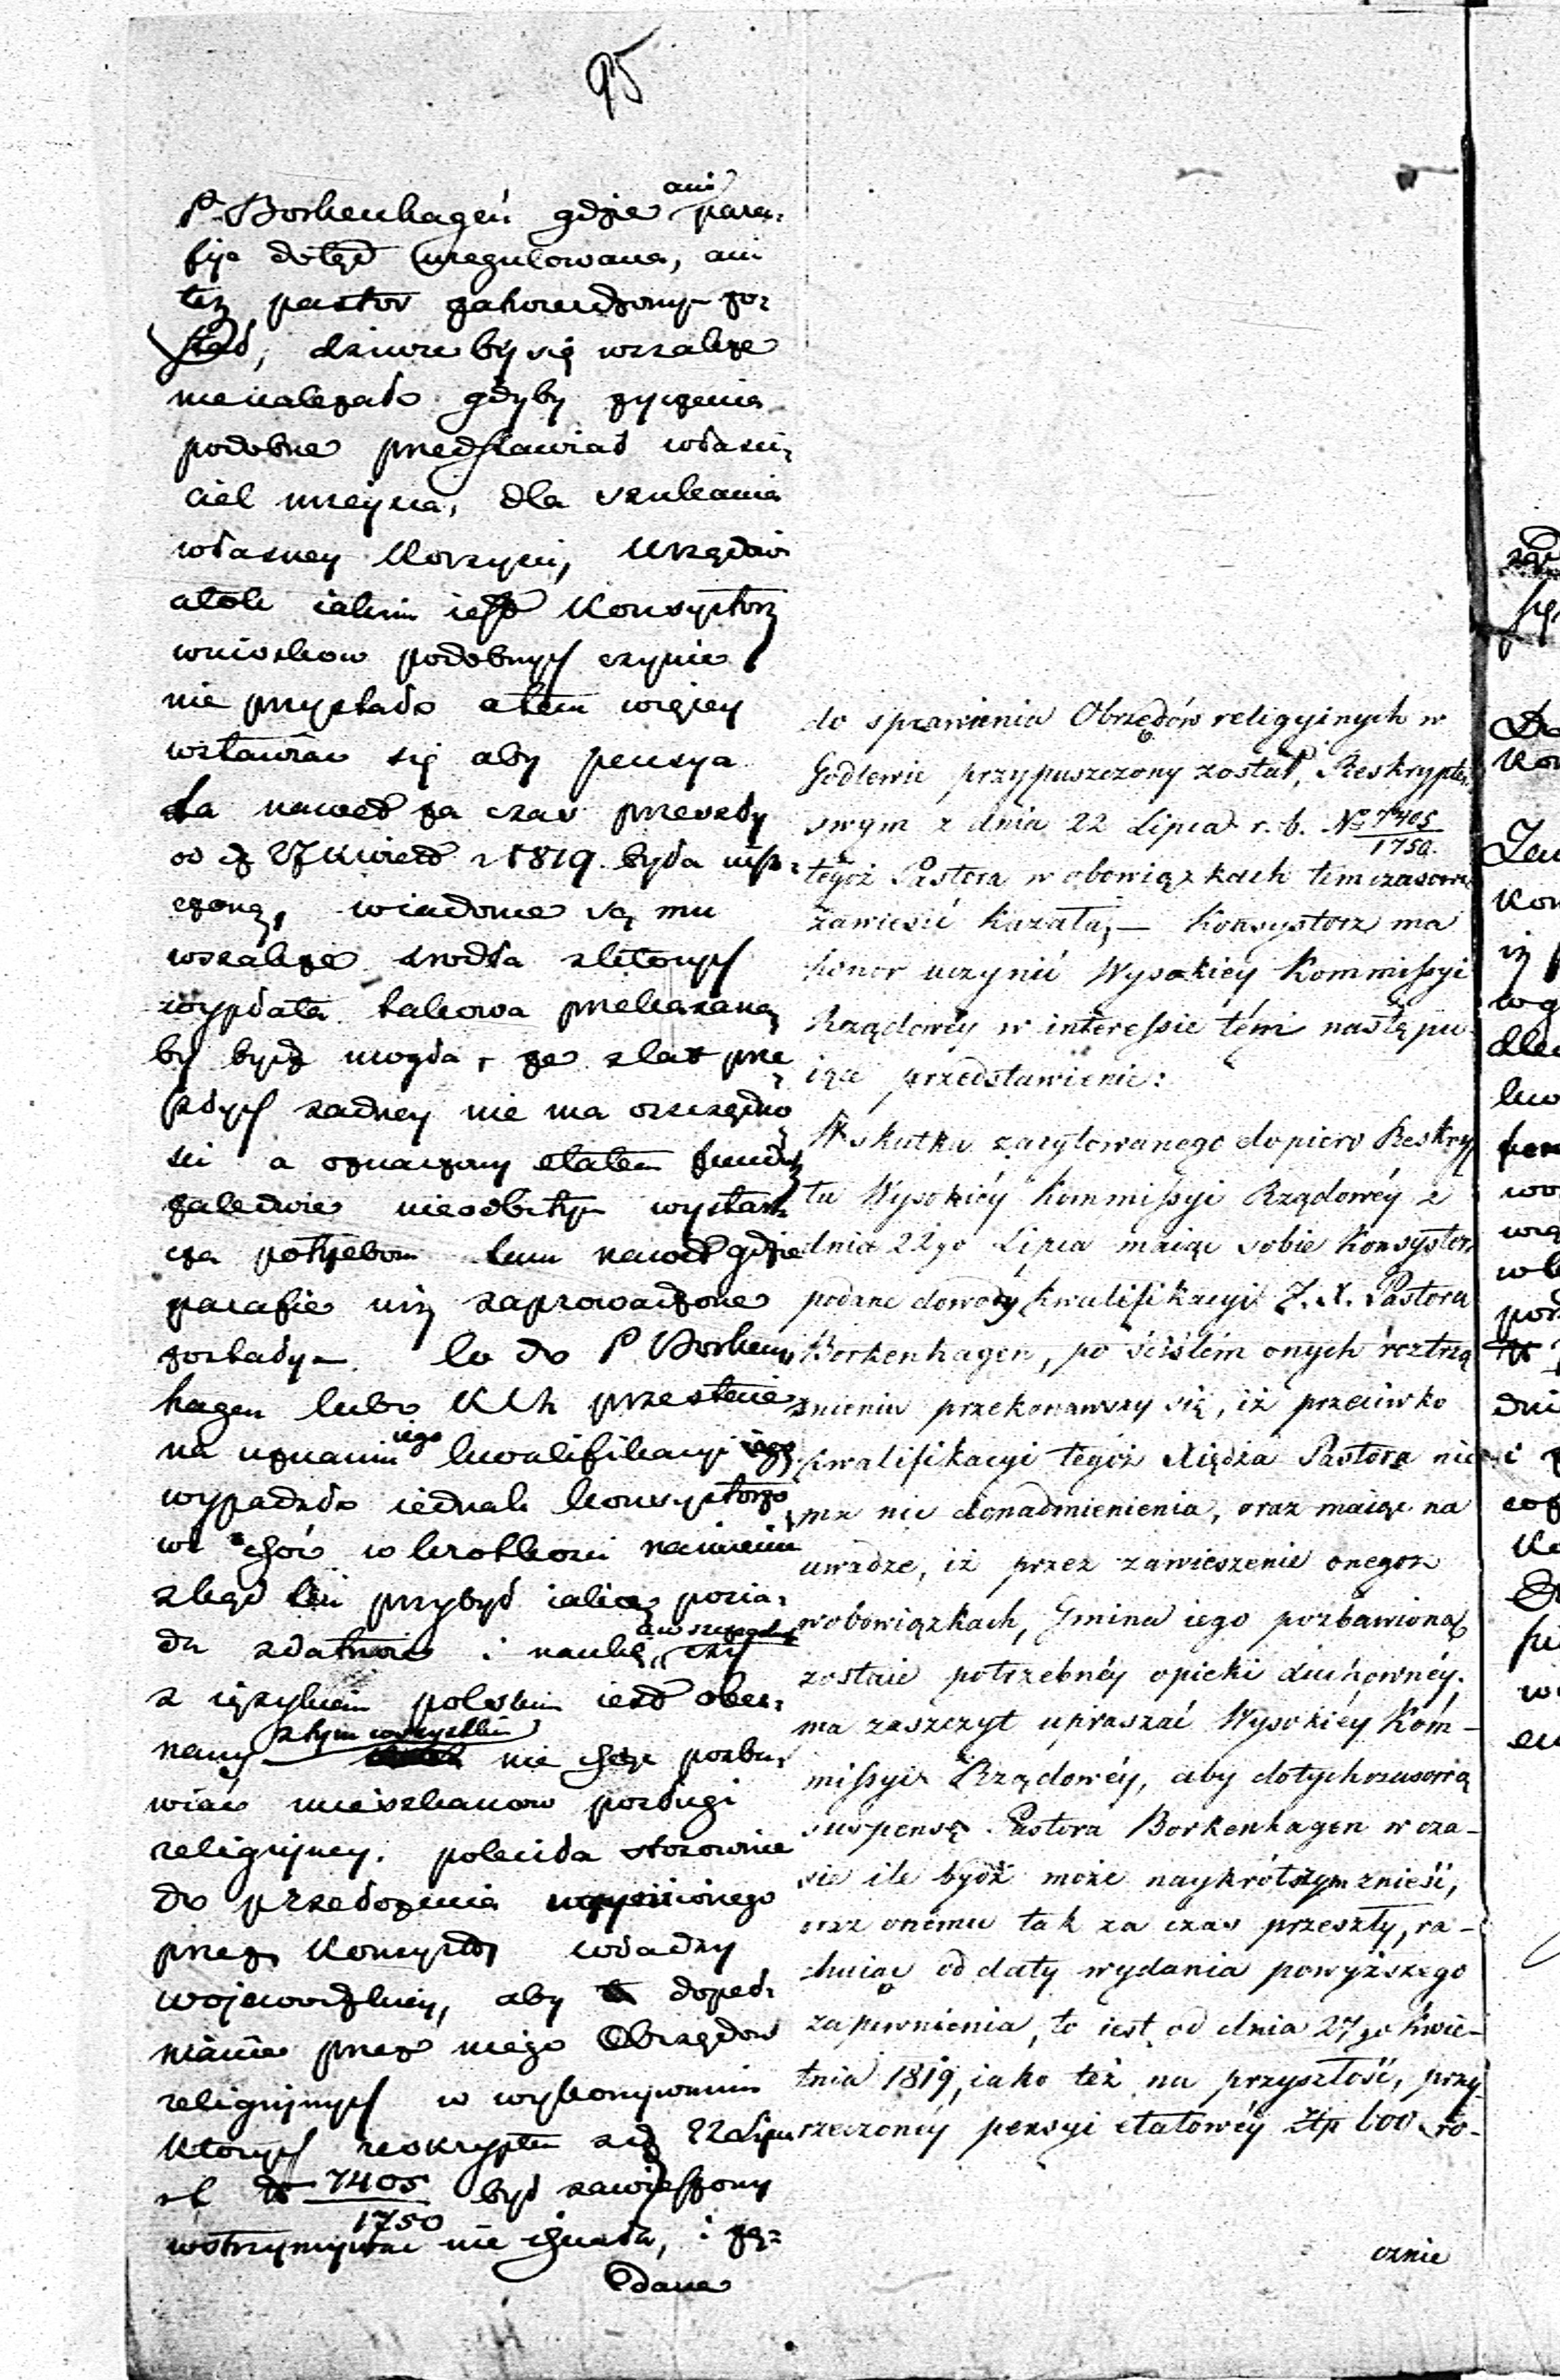 95
P. Borkenhagen gdzie ani para-
fija dotąd uregulowana, ani
też pastor zatwierdzony zo-
stał, dziwić by się wszakże
nienależało gdyby życzenia
podobne przedstawiał właści-
ciel mieysca, dla szukania
własney korzyści, Urzędowi
atoli iakim iest Konsystorz
wniosków podobnych czynić
nie przystało a tem więcey
wstawiać się aby pensya
ta nawet za czas przeszły
od d. 27 Kwiet. 1819 była uisz-
czoną, wiadome są mu
wszakże źrodła z których
wypłata takowa przekazaną
by bydź mogła, że z lat prze
szłych żadney nie ma oszczędno
ści a oznaczony etatem fundusz
zaledwie nieodbitym wystar-
cza potrzebom tam nawet gdzie
parafie iuż zaprowadzone
zostały. Co do P. Borken-
hagen lubo
na uznaniu iego kwalifikacyi
wypadało iednak Konsystorzo
wi choć w krotkości
zkąd ten przybył iaką posia-
da zdatność i naukę, a w szczegolności czyli
z ięzykiem polskim iest obez-
nany z tym wszystkim nie chcąc pozba-
wiać mieszkancow posługi
religijney. poleciła stosownie
do przełożenia uczynionego
przez Konsystorz władzy
wojewodzkiey, aby dopeł-
niania przez niego Obrzędow
religijnych w wykonywaniu
ktorych reskryptem z d. 22 Lipca
r. b. N 7405/1750 był zawieszony
wstrzymywać nie chciała, i żą-
dane
do sprawienia Obrzędów religyinych w
Godlewie przypuszczony został, Reskryptem
swym z dnia 22 Lipca r. b. No 7405/1750.
tegoż Pastora w obowiązkach timczasowie
zawiesić kazała, — Konsystorz ma
honor uczynić Wysokiéy Kommissyi
Rządowéy w interessie témi następu
iące przedstawienie:
W skutku zacytowanego dopiero Reskryp
tu Wysokiéy Kommissyi Rządowéy z
dnia 22go Lipca maiąc sobie Konsystorz
podane dowody kwalifikacyi J. X. Pastora
Borkenhagen, po ściślém onych roztrzą
śnieniu przekonawszy się, iż przeciwko
kwalifikacyi tegoż Xiędza Pastora nic
ma nic donadmienienia, oraz maiąc na
uwadze, iż przez zawieszenie onegoż
w obowiązkach, Gmina iego pozbawioną
zostaie potrzebnéy opieki duchownéy,
ma zaszczyt upraszać Wysokiéy Kom-
missyi Rządowéy, aby dotychczasową
suspensę Pastora Borkenhagen w cza-
sie ile bydź może naykrótszym znieść,
oraz onemu tak za czas przeszły, ra-
chuiąc od daty wydania powyższego
zapewnienia, to iest od dnia 27go Kwie-
tnia 1819, iako też na przyszłość, przy
rzeczonéy pensyi etatowéy Złp 600 ro-
cznie